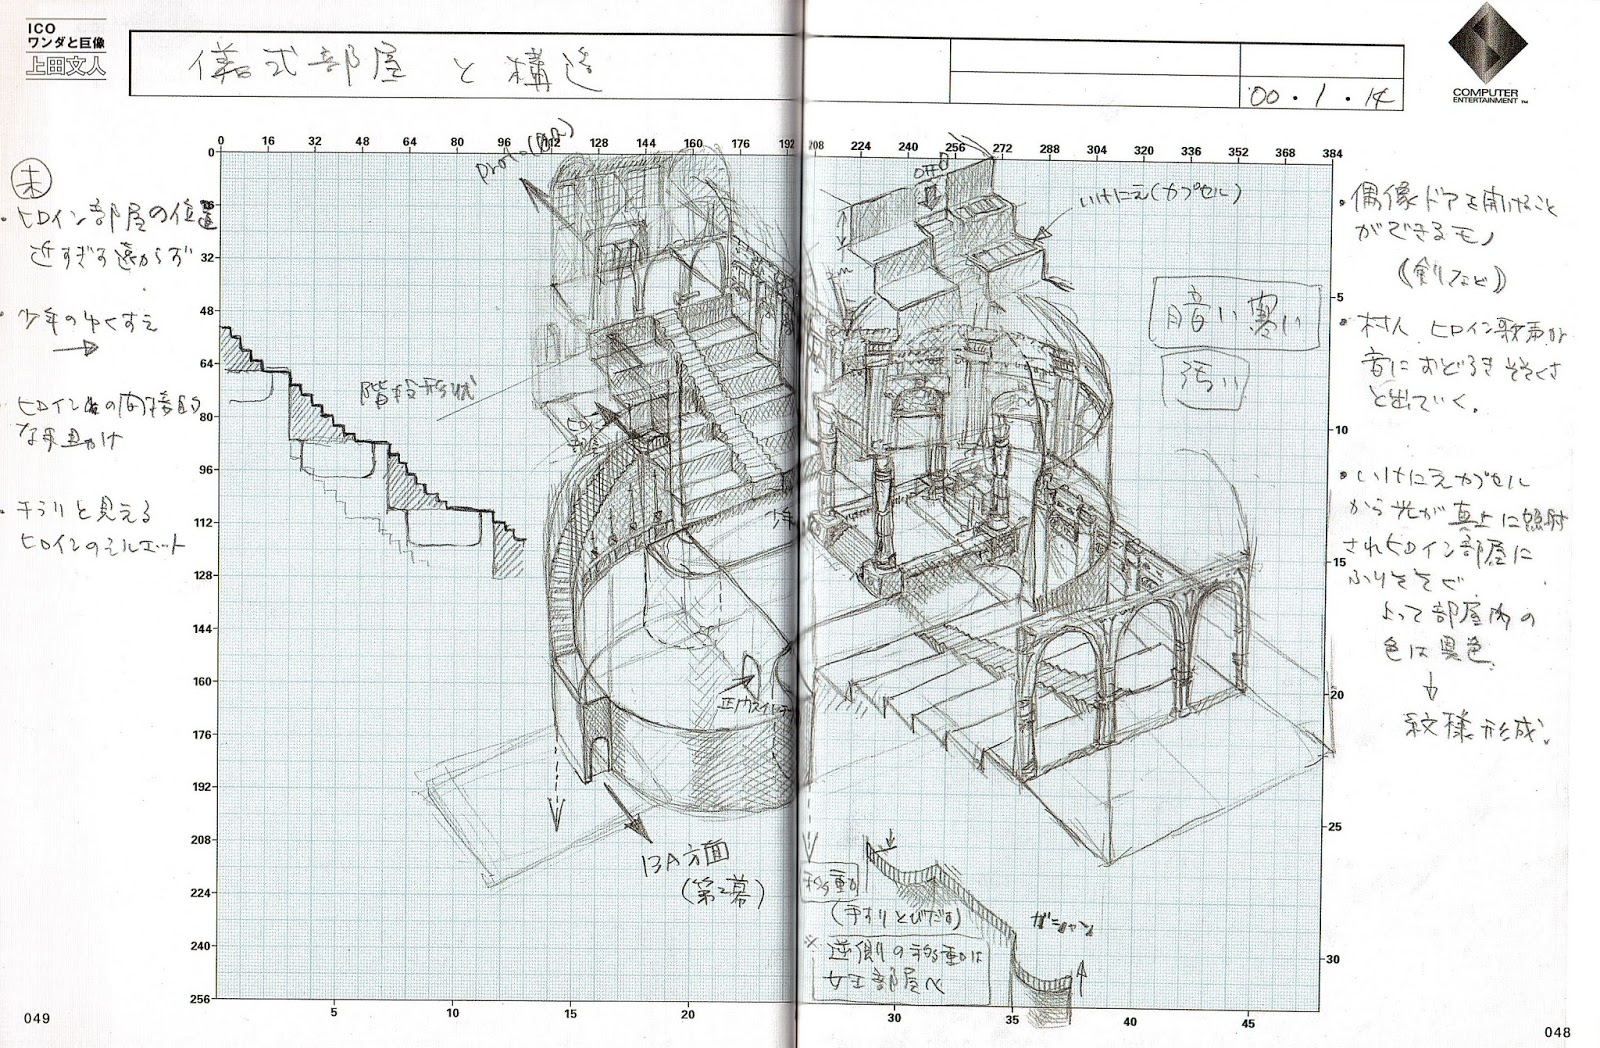 ICO
ワンダと巨像
上田文人
儀式部屋 と 構造
'00・1・14
COMPUTER
ENTERTAINMENT ™
0 16 32 48 64 80 96 112 128 144 160 176 192 208 224 240 256 272 288 304 320 336 352 368 384
0
32
48
64
80
96
112
128
144
160
176
192
208
224
240
256
5 10 15 20 30 35 40 45
5
10
15
20
25
30
・ヒロイン部屋の位置
近すぎず遠からず
・少年のゆくすえ
・チラリと見える
ヒロインのシルエット
階段形状
いけにえ(カプセル)
暗い 寒い
汚い
・偶像ドアを開けること
ができるモノ
(剣など)
・村人、ヒロイン歌声が
音におどろきそそくさ
と出ていく。
・いけにえカプセル
から光が真上に照射
されヒロイン部屋に
ふりそそぐ
よって部屋内の
色は異色
紋様形成。
13A方面
(第2幕)
移動
(手すりとびだす)
※逆側の移動は
女王部屋へ
049
048